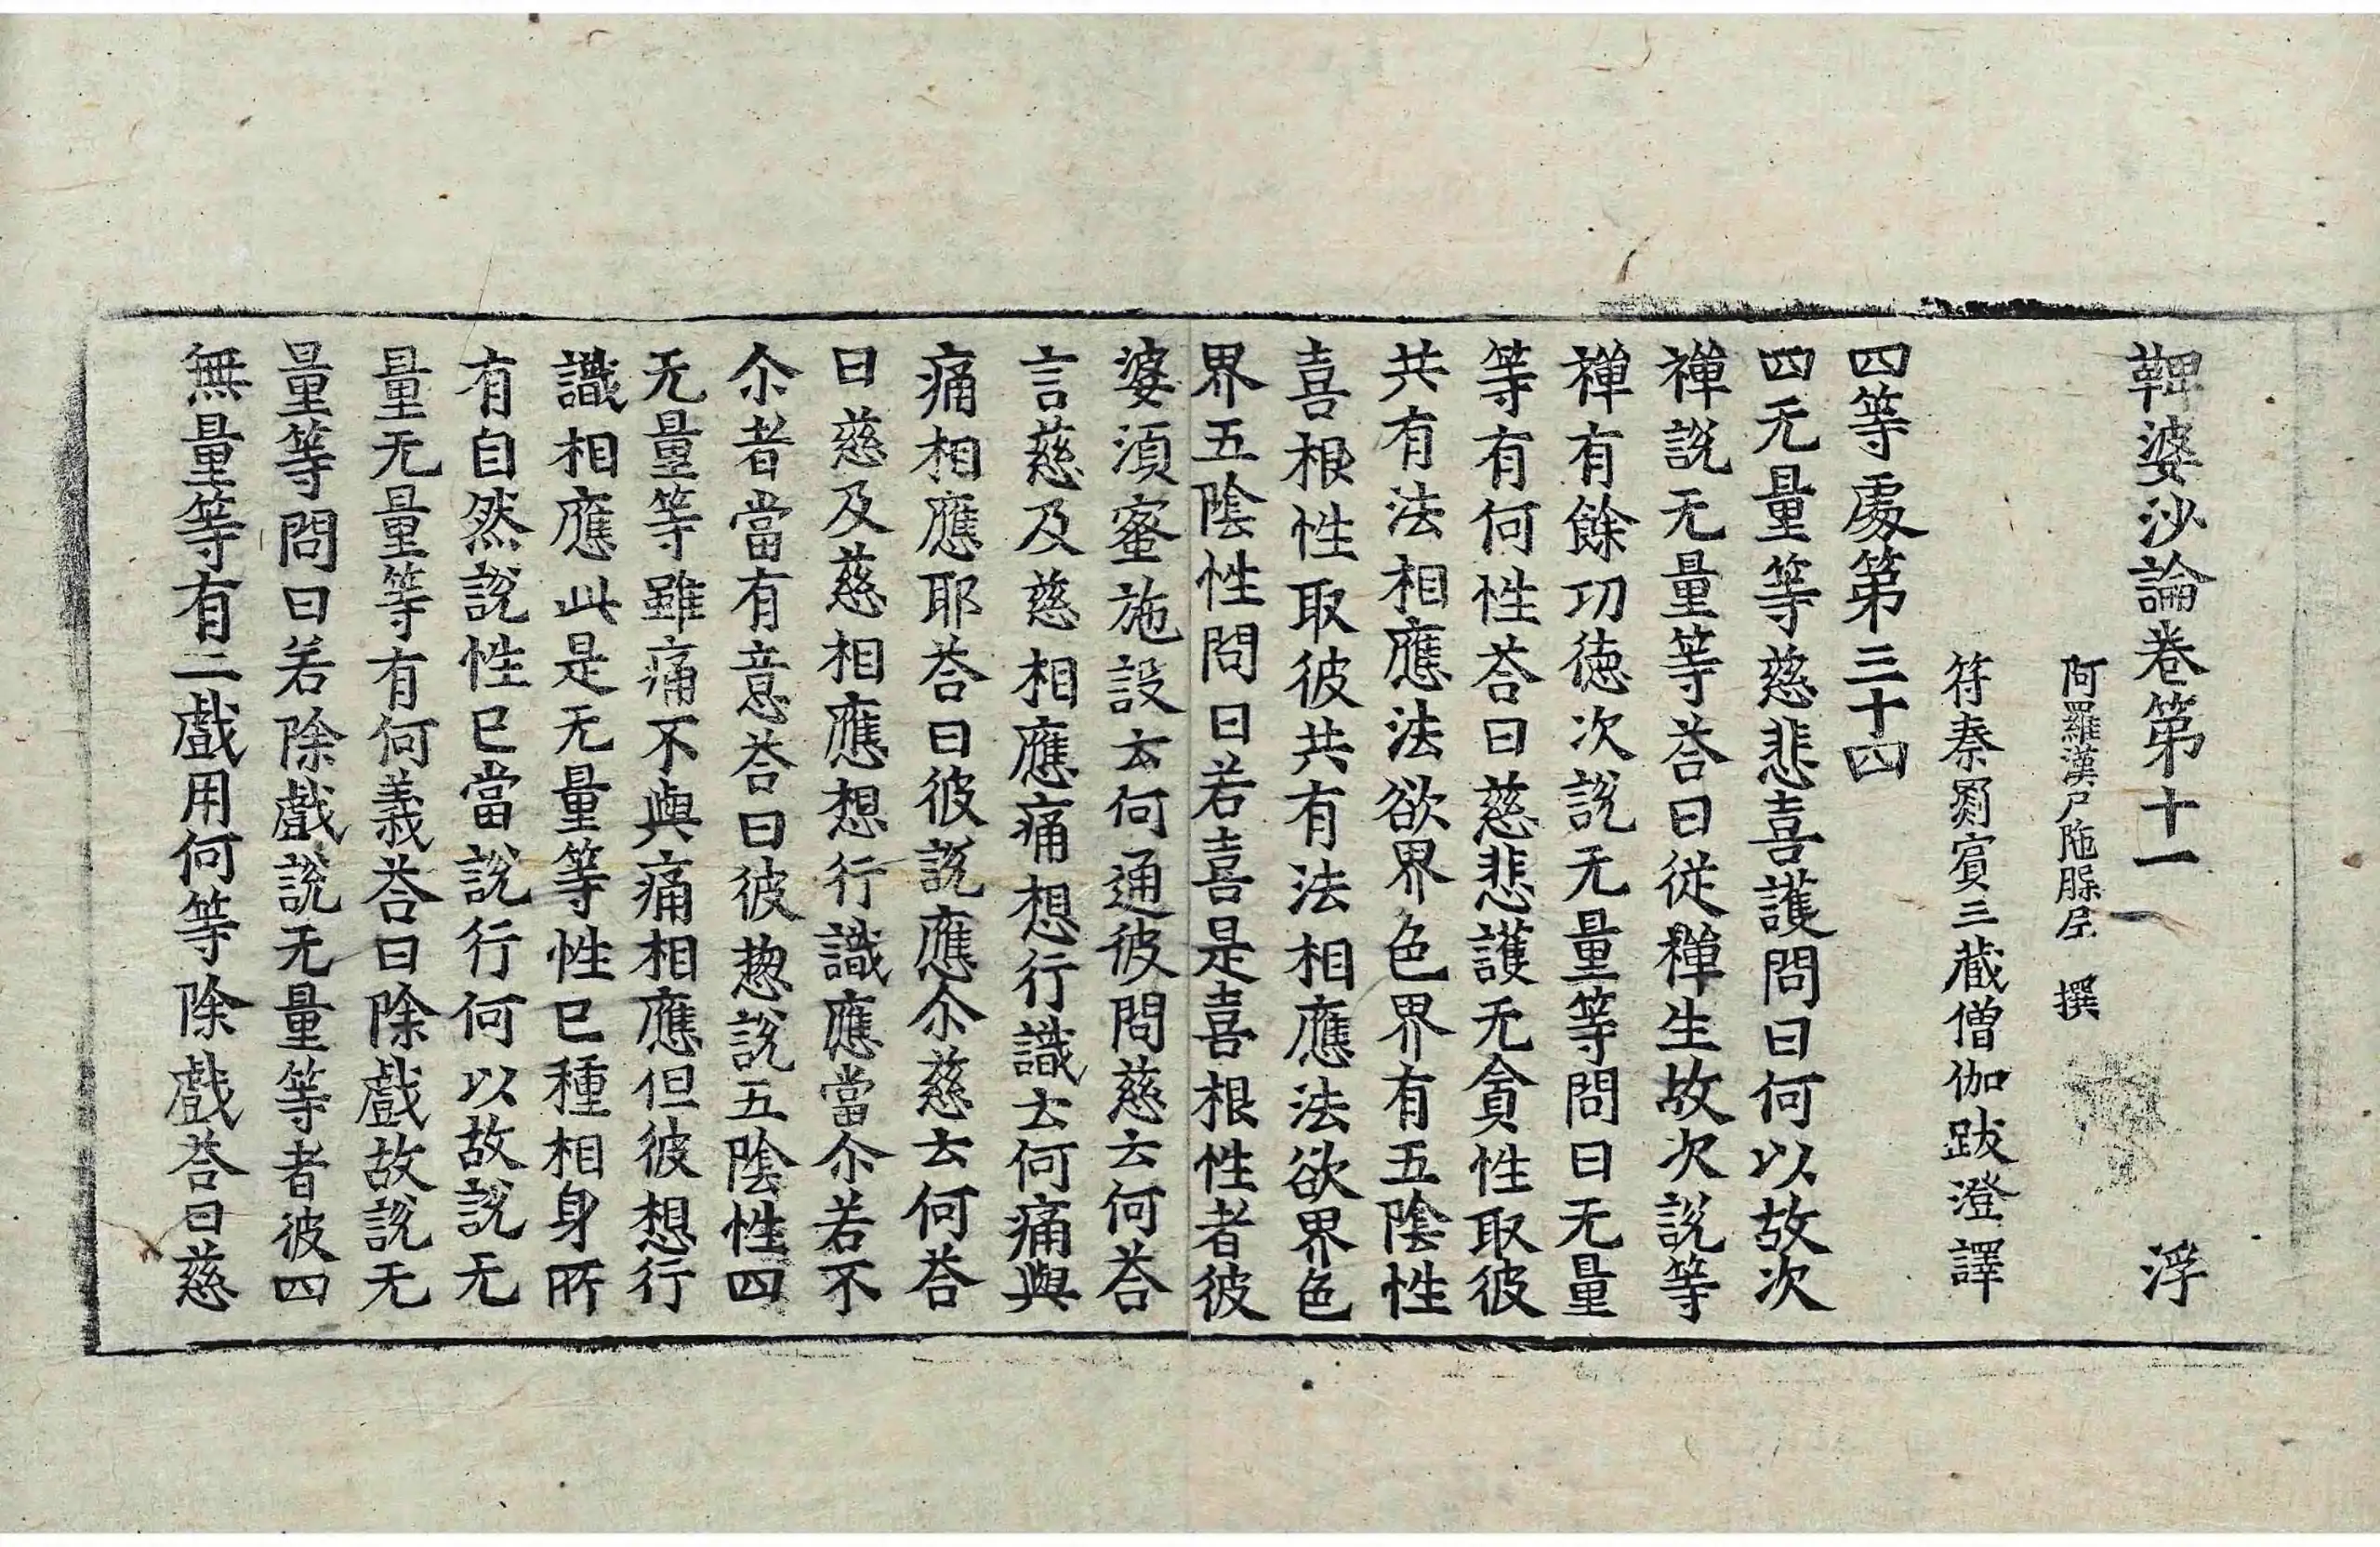 鞞婆沙論卷第十一　浮
阿羅漢尸陁䏶尼　撰
符秦罽賓三藏僧伽跋澄譯
四等處第三十四
四无量等慈悲喜護問曰何以故次
禪說无量等荅曰從禪生故次說等
禪有餘功德次說无量等問曰无量
等有何性荅曰慈悲護无貪性取彼
共有法相應法欲界色界有五陰性
喜根性取彼共有法相應法欲界色
界五陰性問曰若喜是喜根性者彼
婆須蜜施設云何通彼問慈云何荅
言慈及慈相應痛想行識云何痛與
痛相應耶荅曰彼說應尒慈云何荅
曰慈及慈相應想行識應當尒若不
尒者當有意荅曰彼惣說五陰性四
无量等雖痛不與痛相應但彼想行
識相應此是无量等性已種相身所
有自然說性已當說行何以故說无
量无量等有何義荅曰除戲故說无
量等問曰若除戲說无量等者彼四
無量等有二戲用何等除戲荅曰慈